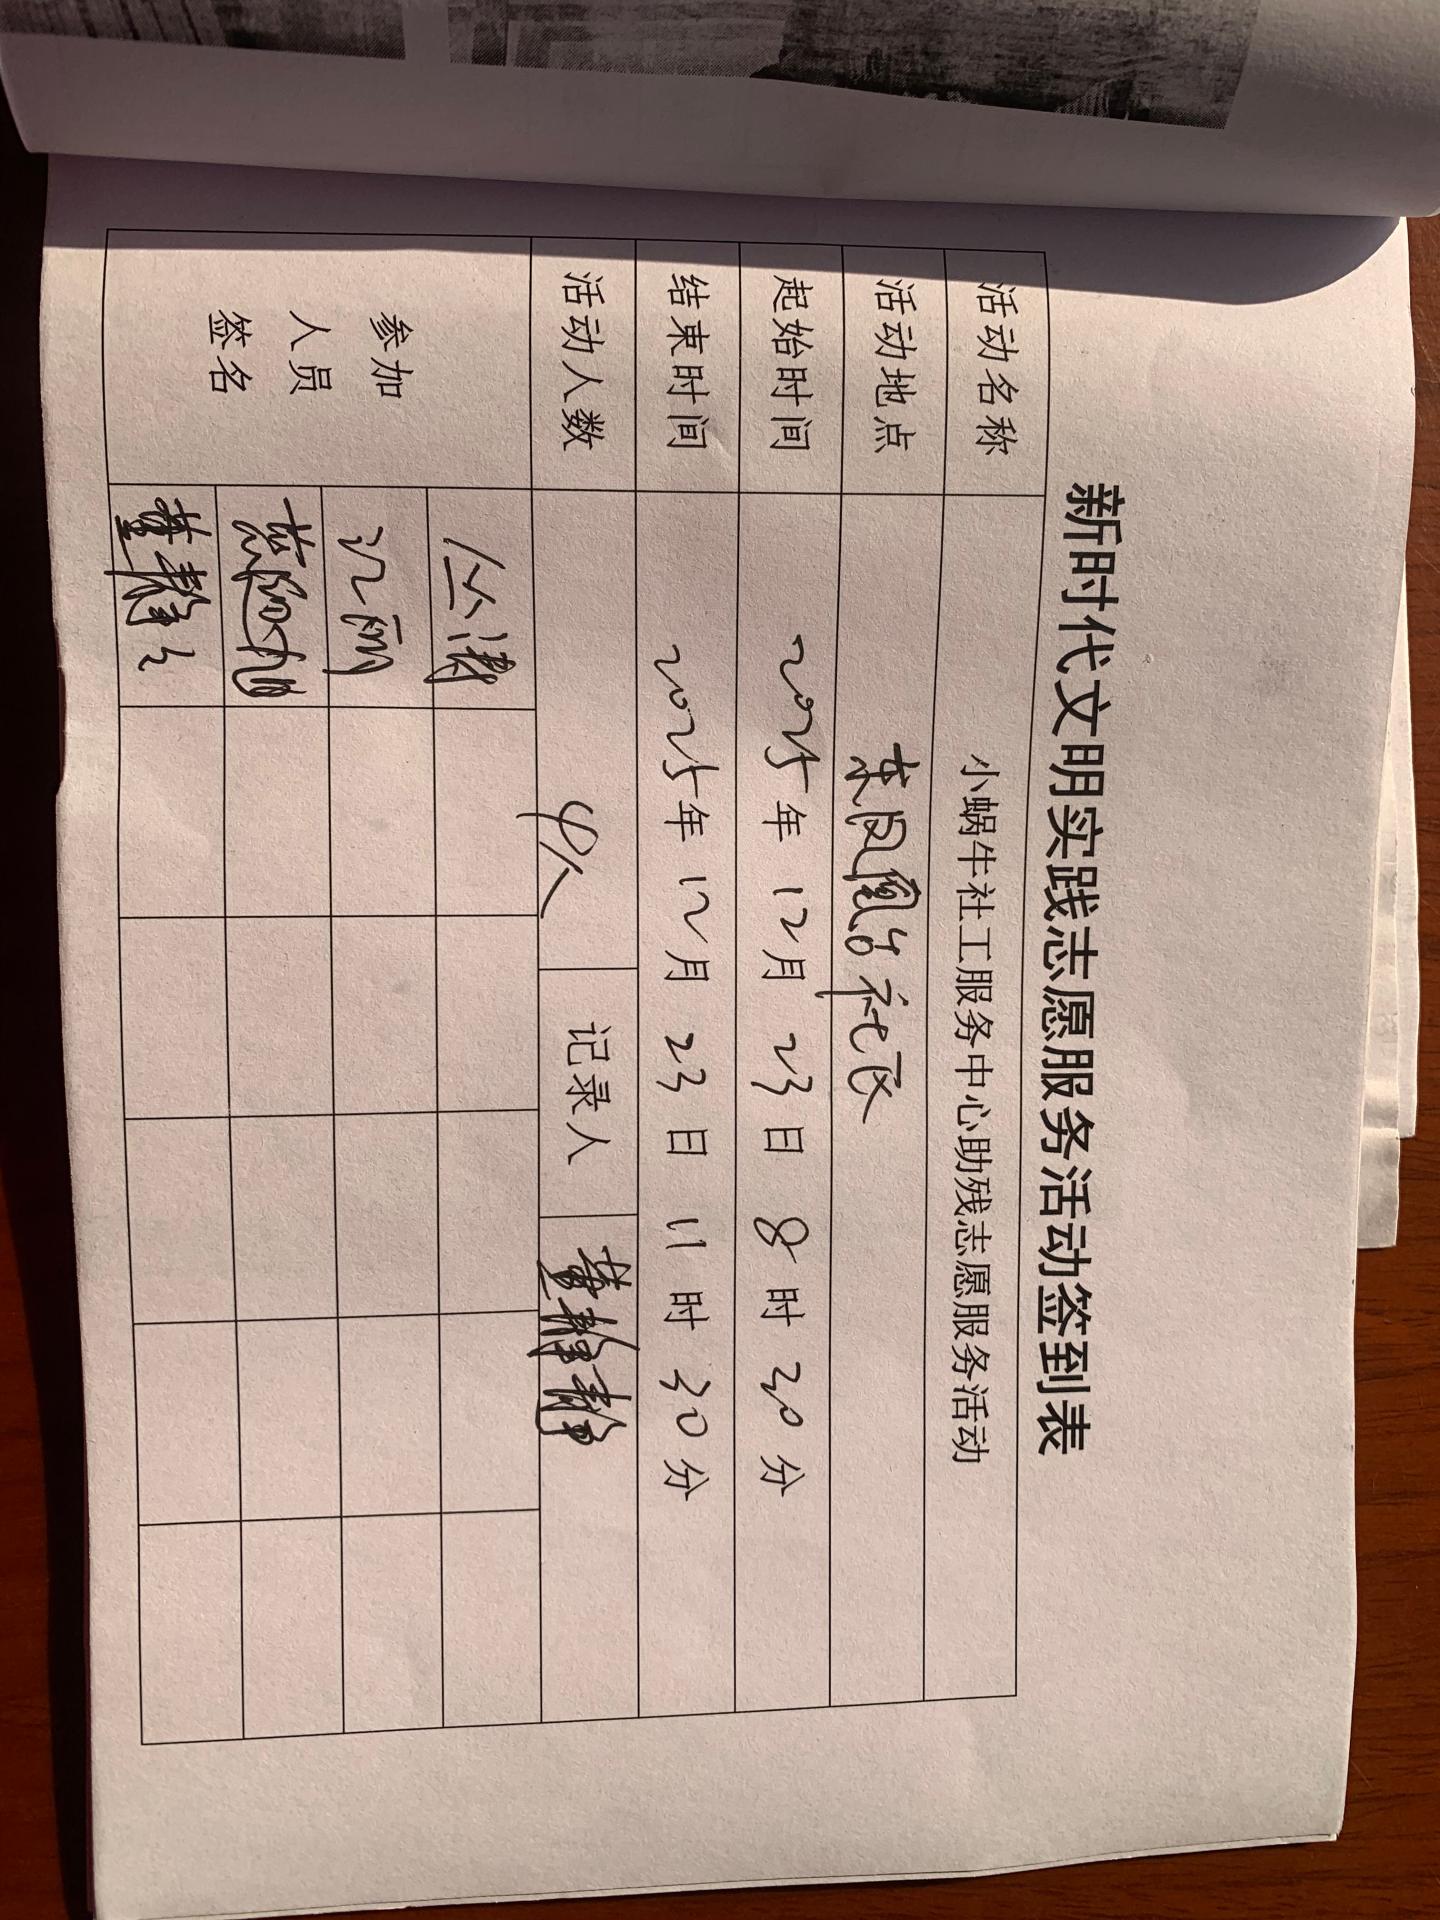 新时代文明实践志愿服务活动签到表
活动名称 小蜗牛社工服务中心助残志愿服务活动
活动地点 东凤凰台社区
起始时间 2025年 12月 23日 8时 30分
结束时间 2025年 12月 23日 11时 30分
活动人数 4人 记录人 董静静
参加
人员
签名
丛涛
江丽
董静